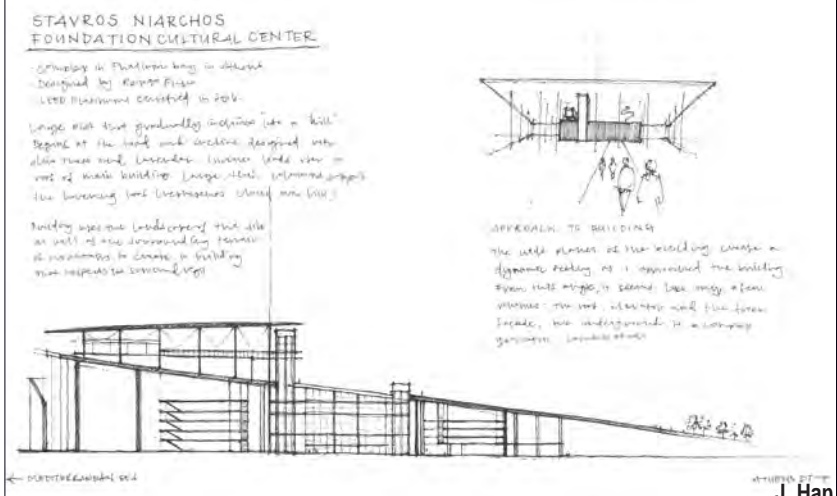 STAVROS NIARCHOS
FOUNDATION CULTURAL CENTER
- Complex in Phaliron bay in Athens
- Designed by Renzo Piano
- LEED Platinum certified in 2016
Large plot that gradually inclines into a "hill"
Begins at the road and incline designed with
olive trees and lavender. Incline leads over
roof of main building. Large, thin columns support
the hovering roof
Building uses the landscape of the site
as well as the surrounding terrain
of mountains to create a building
that respects the surroundings
APPROACH TO BUILDING
The wide planes of the building create a
dynamic feeling as I approached the building
From this angle, it seems like only a few
volumes: the roof, elevator and the front
facade, but underground is a complex
← MEDITERRANEAN SEA
ATHENS →
J. Han